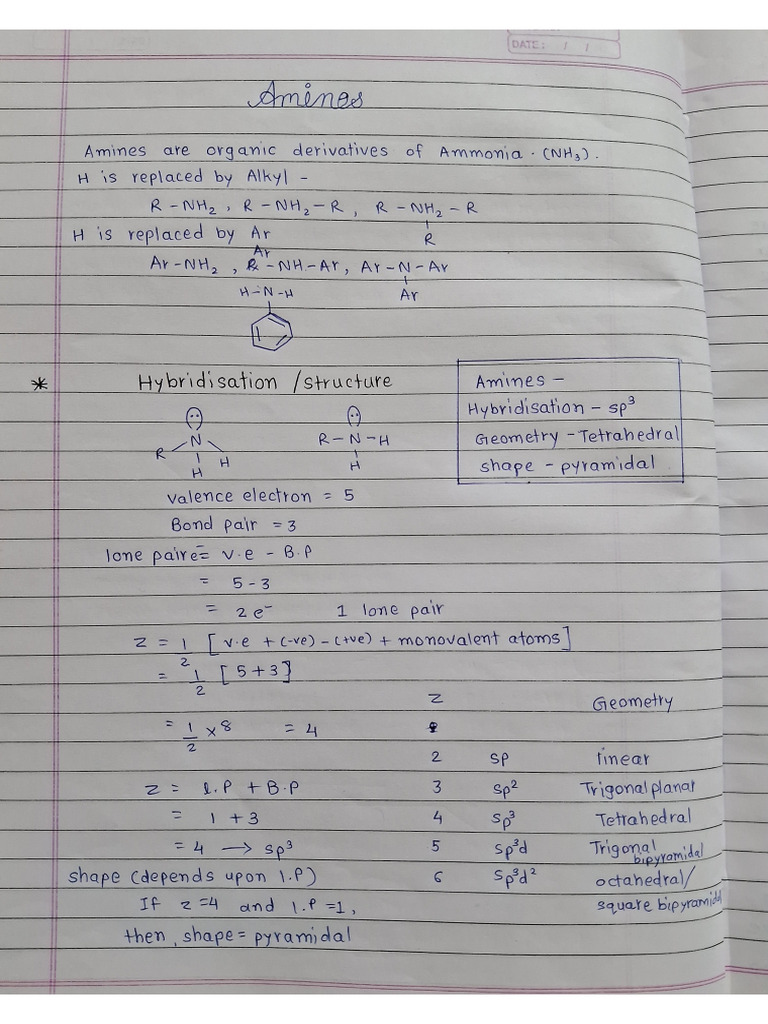 DATE: / /
Amines
Amines are organic derivatives of Ammonia. (NH₃).
H is replaced by Alkyl -
R - NH₂, R - NH₂ - R, R - NH₂ - R
R
H is replaced by Ar
Ar
Ar-NH₂, R - NH-Ar, Ar-N-Ar
Ar
H-N-H
* Hybridisation /structure
Amines -
Hybridisation - sp³
Geometry - Tetrahedral
shape - pyramidal
N
R H H
R-N-H
H
valence electron = 5
Bond pair = 3
lone paire = v.e - B.P
= 5-3
= 2e⁻ 1 lone pair
Z = 1/2 [v.e + (-ve) - (+ve) + monovalent atoms]
= 1/2 [5+3]
= 1/2 x 8 = 4
Z Geometry
2 sp linear
3 sp² Trigonal planar
4 sp³ Tetrahedral
5 sp³d Trigonal bipyramidal
6 sp³d² octahedral/ square bipyramidal
Z = l.P + B.P
= 1 + 3
= 4 → sp³
shape (depends upon l.P)
If z=4 and l.P=1,
then, shape = pyramidal